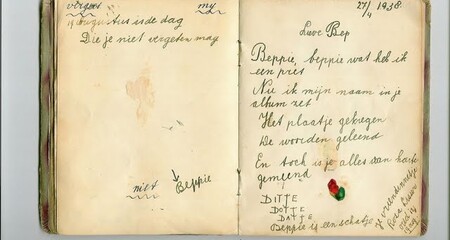 vergeet my
19 Augustus is de dag
Die je niet vergeten mag
niet Beppie
27/4 1938
Lieve Bep
Beppie, beppie wat heb ik
een pret
Nu ik mijn naam in je
album zet
Het plaatje gekregen
De woorden geleend
En toch is je alles van harte
gemeend
DITTE
DOTTE
DATTE
Beppie is een schatje
je vriendinnetje